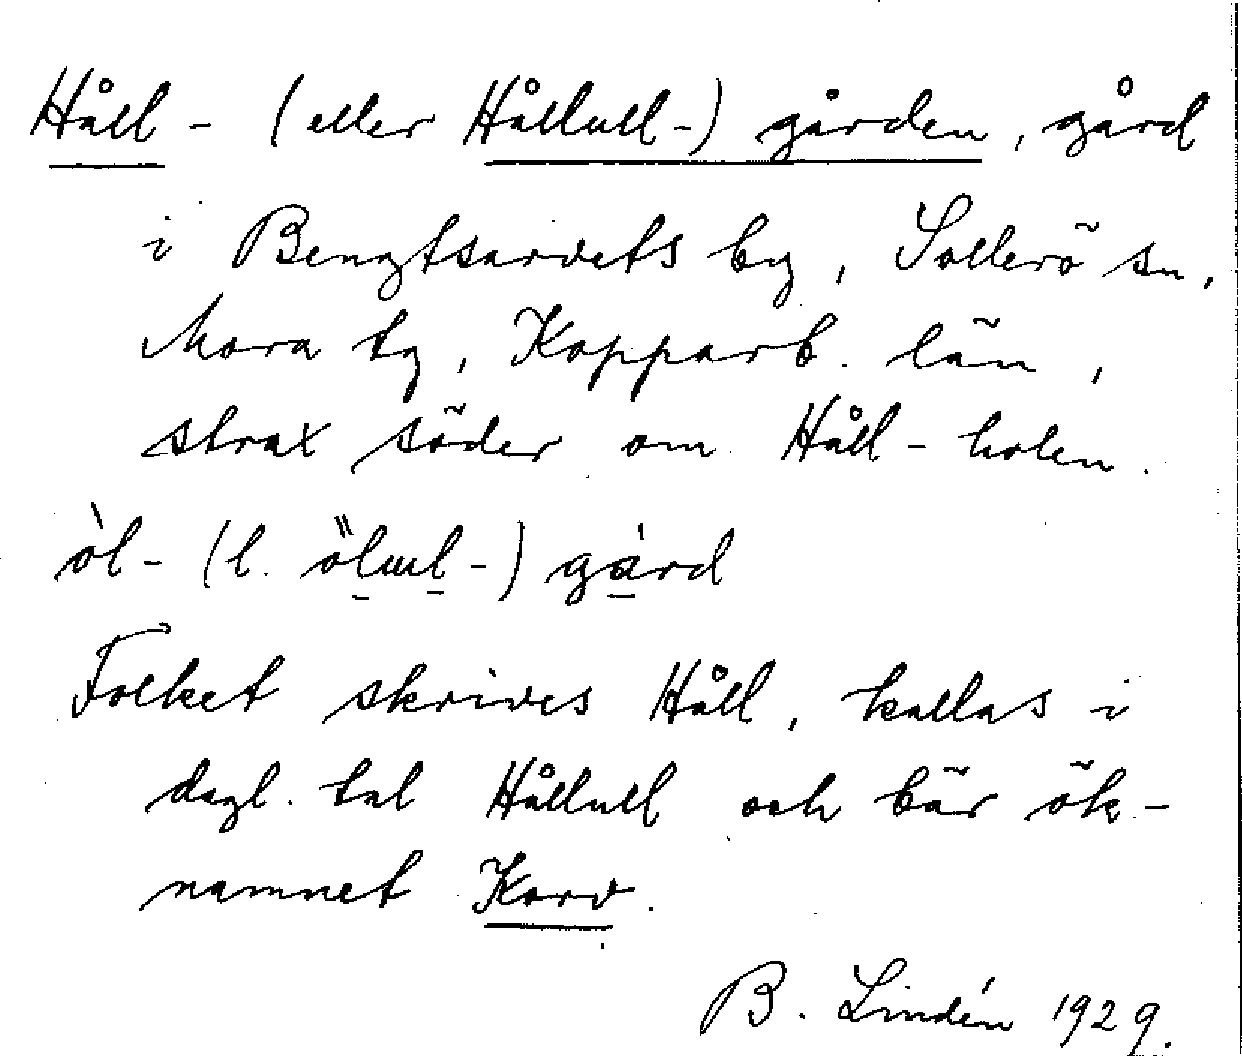 Håll- (eller Hållull-) gården, gård
i Bengtsarvets by, Sollerö sn,
Mora tg, Kopparb. län,
strax söder om Håll-holen.
òl- (l. ö̀lɯl-) gàrd
Folket skrives Håll, kallas i
dagl. tal Hållull och bär ök-
namnet Korv.
B. Lindén 1929.